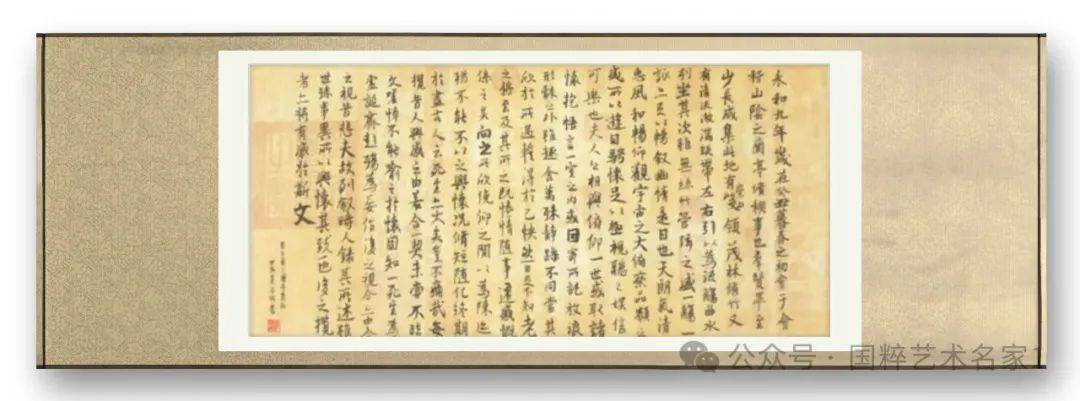 永和九年歲在癸丑暮春之初會于會
稽山陰之蘭亭脩稧事也羣賢畢至
少長咸集此地有崇山峻領茂林脩竹又
有清流激湍暎帶左右引以為流觴曲水
列坐其次雖無絲竹管弦之盛一觴一
詠亦足以暢敘幽情是日也天朗氣清
惠風和暢仰觀宇宙之大俯察品類之
盛所以遊目騁懷足以極視聽之娛信
可樂也夫人之相與俯仰一世或取諸
懷抱悟言一室之內或因寄所託放浪
形骸之外雖趣舍萬殊靜躁不同當其
欣於所遇暫得於己快然自足不知老
之將至及其所之既惓情隨事遷感慨
係之矣向之所欣俛仰之閒以為陳迹
猶不能不以之興懷況脩短隨化終期
於盡古人云死生亦大矣豈不痛哉每
攬昔人興感之由若合一契未嘗不臨
文嗟悼不能喻之於懷固知一死生為
虛誕齊彭殤為妄作後之視今亦由今
之視昔悲夫故列敘時人錄其所述雖
世殊事異所以興懷其致一也後之攬
者亦將有感於斯文
公众号·国粹艺术名家